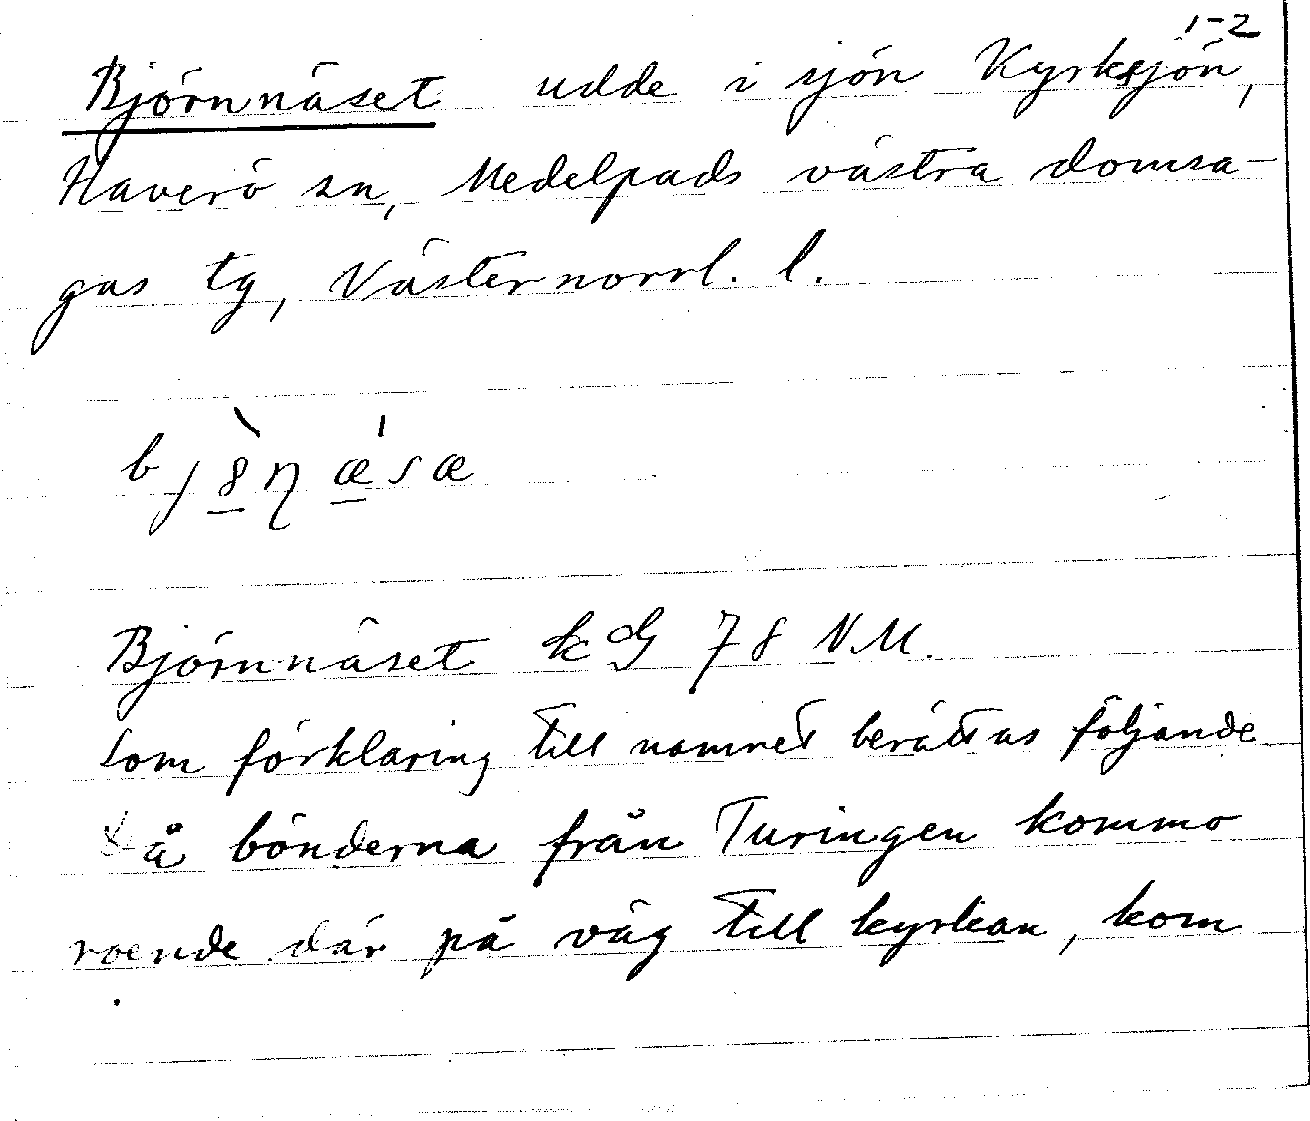 1-2
Björnnäset udde i sjön Kyrksjön,
Haverö sn, Medelpads västra domsa-
gas tg, Västernorrl. l.
Björnnäset kG 78 N.M.
Som förklaring till namnet berättas följande
Då bönderna från Turingen kommo
roende där på väg till kyrkan, kom